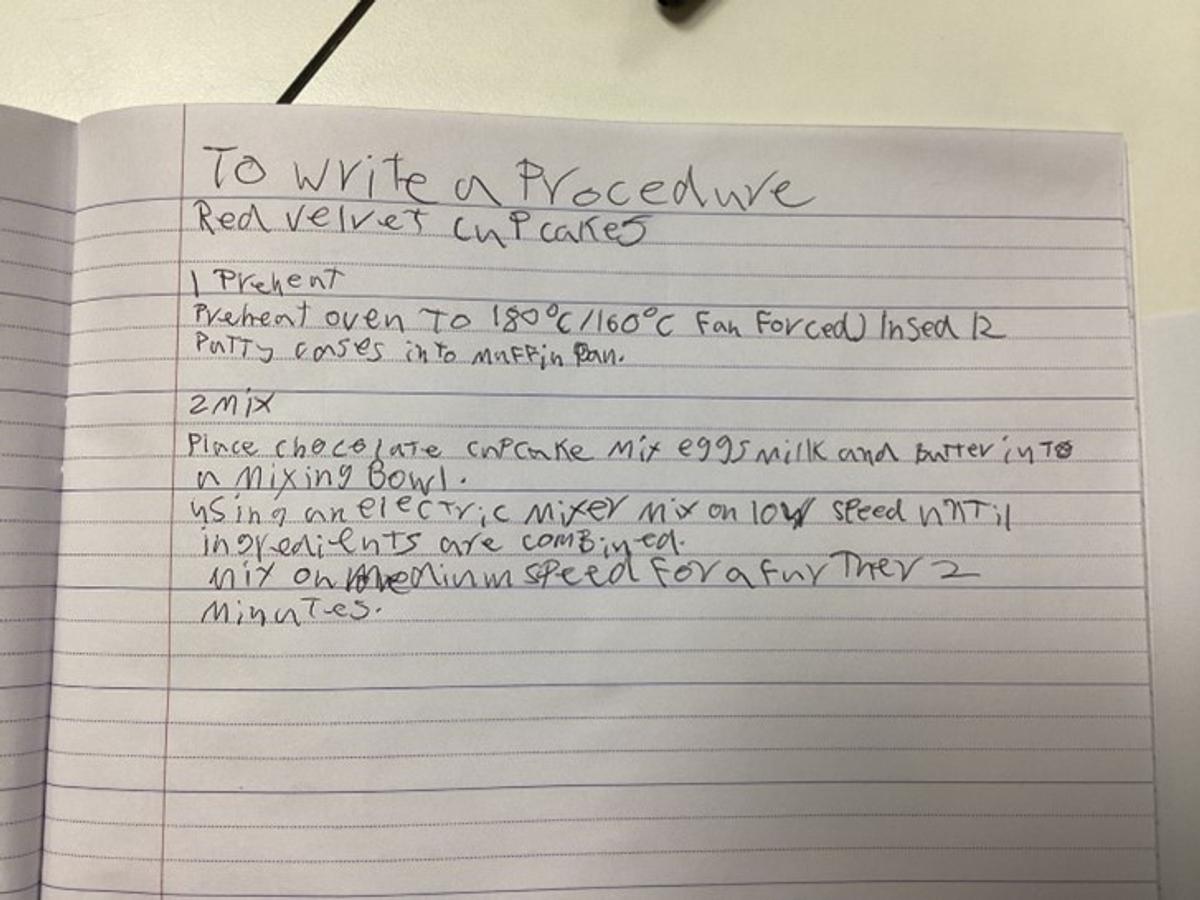 To write a Procedure
Red velvet cupcakes
1 Preheat
Preheat oven To 180°C/160°C Fan Forced) Insed 12
Patty cases into muffin Pan.
2 mix
Place chocolate cupcake mix eggs milk and butter into
a mixing Bowl.
using an electric mixer mix on low speed until
ingredients are comBined.
mix on medium speed for a further 2
minutes.